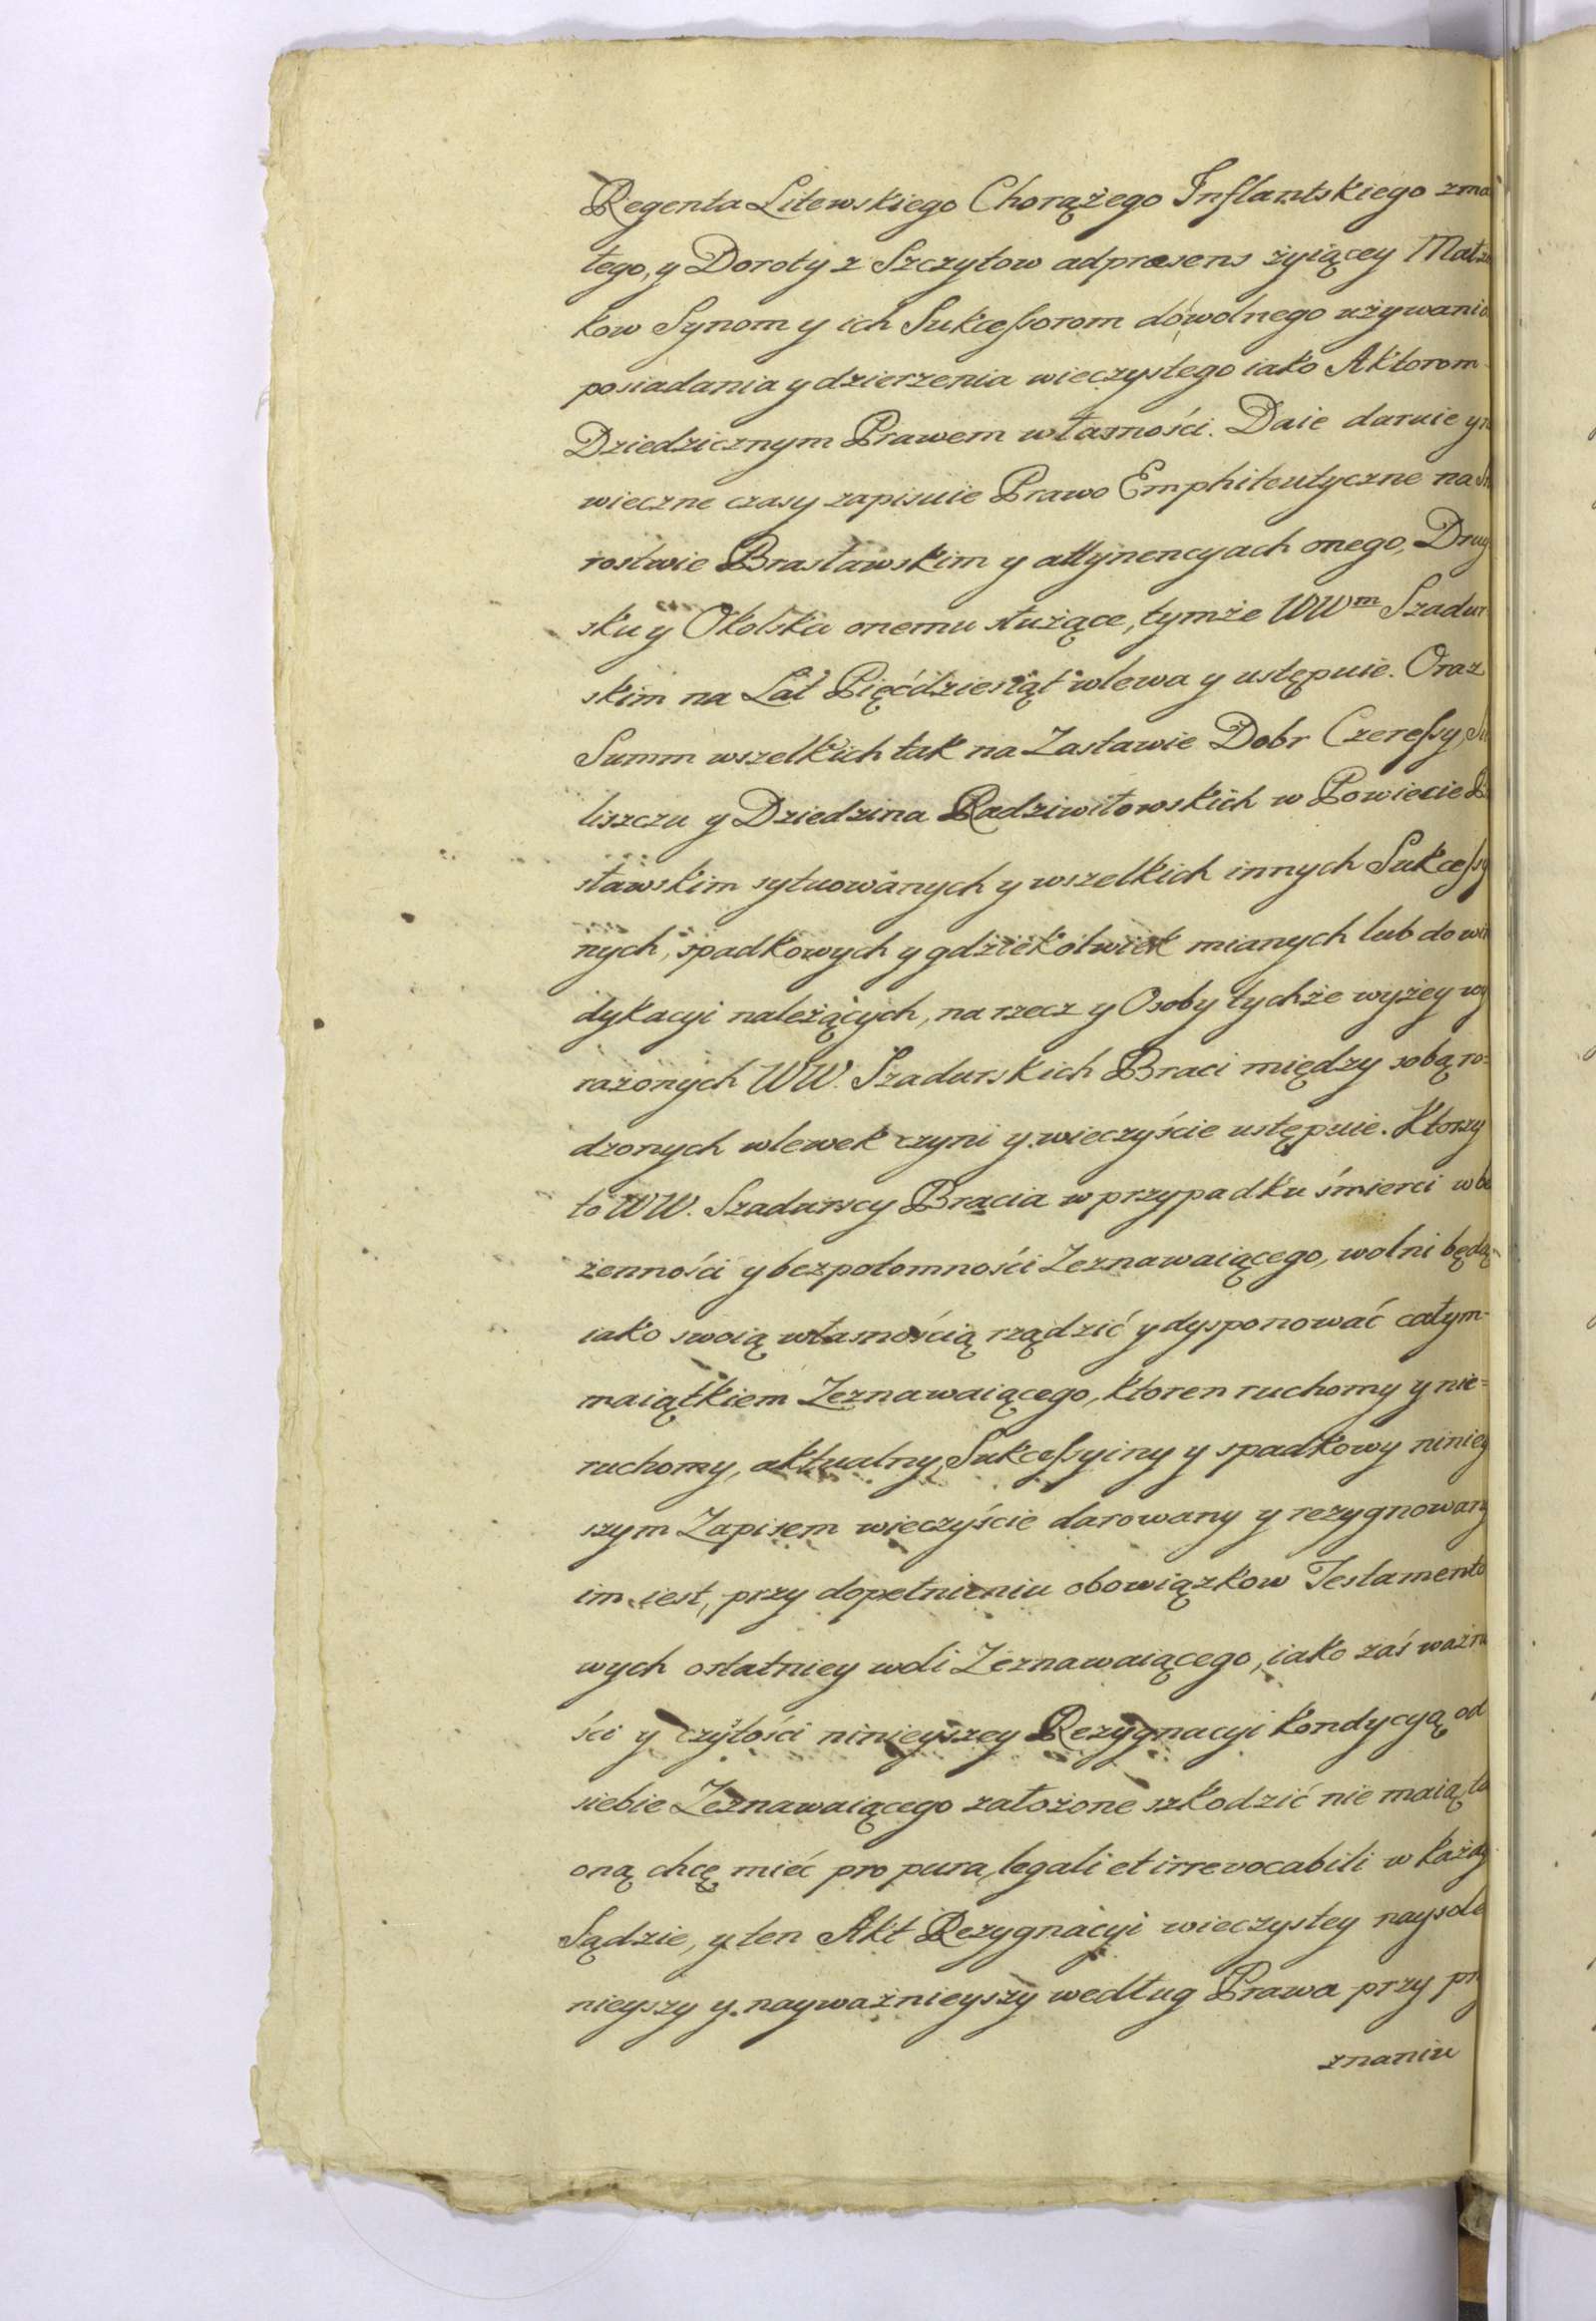 Regenta Litewskiego Chorążego Inflantskiego zma
łego, y Doroty z Szczytow adpraesens żyiącey Małż
kow Synom y ich Sukceſsorom dowolnego używania
posiadania y dzierzenia wieczystego iako Aktorom
Dziedzicznym Prawem własności. Daie daruie y n
wieczne czasy zapisuie Prawo Emphiteutyczne na St
rostwie Brasławskim y attynencyach onego, Druy
sku y Okolsku onemu służące, tymże WWm Szadur
skim na Lat Pięćdziesiąt wlewa y ustępuie. Oraz
Summ wszelkich tak na Zastawie Dobr Czereſsy,
liszczu y Dziedzina Radziwiłowskich w Powiecie B
sławskim sytuowanych y wszelkich innych Sukceſsy
nych, spadkowych y gdziekolwiek mianych lub do win
dykacyi należących, na rzecz y Osoby tychże wyżey wy
rażonych WW. Szadurskich Braci między sobą ro=
dzonych wlewek czyni y wieczyście ustępuie. Ktorzy
to WW. Szadurscy Bracia w przypadku śmierci w be
żenności y bezpotomności Zeznawaiącego, wolni będą
iako swoią własnością rządzić y dysponować całym
maiątkiem Zeznawaiącego, ktoren ruchomy y nie=
ruchomy, aktualny, Sukceſsyiny y spadkowy niniey
szym Zapisem wieczyście darowany y rezygnowany
im iest, przy dopełnieniu obowiązkow Testamento
wych ostatniey woli Zeznawaiącego, iako zaś ważno
ści y czystości ninieyszey Rezygnacyi kondycyą od
siebie Zeznawaiącego założone szkodzić nie maią, ta
oną chcę mieć pro pura, legali et irrevocabili w każdy
Sądzie, y ten Akt Rezygnacyi wieczystey naysole
nieyszy y nayważnieyszy według Prawa przy pr
znaniu